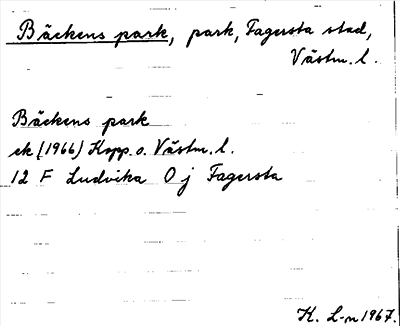 Bäckens park, park, Fagersta stad,
Västm. l.
Bäckens park
ek (1966) Kopp. o. Västm. l.
12 F Ludvika 0 j Fagersta
K. L-n 1967.